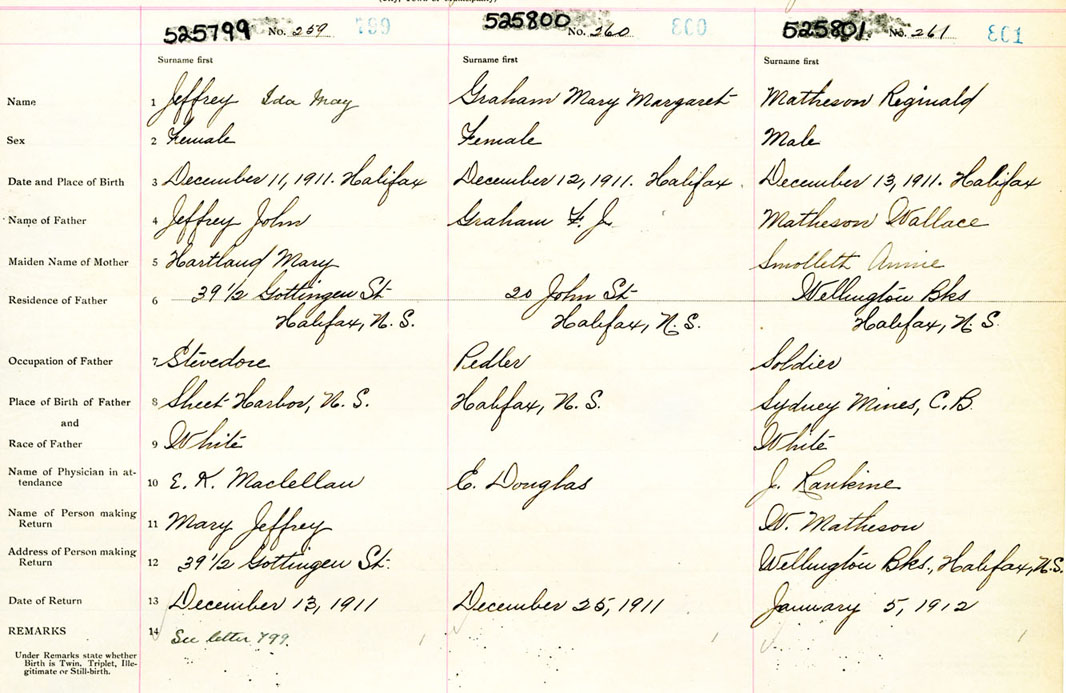 (City, Town or Municipality)
525799 No. 259 799 525800 No. 260 800 525801 No. 261 801
Surname first Surname first Surname first
Name 1 Jeffrey Ida May Graham Mary Margaret Matheson Reginald
Sex 2 Female Female Male
Date and Place of Birth 3 December 11, 1911. Halifax December 12, 1911. Halifax. December 13, 1911. Halifax
Name of Father 4 Jeffrey John Graham F. J. Matheson Wallace
Maiden Name of Mother 5 Hartland Mary Smolleth Annie
Residence of Father 6 39 1/2 Gottingen St 20 John St Wellington Bks
Halifax, N. S. Halifax, N. S. Halifax, N. S.
Occupation of Father 7 Stevedore Pedler Soldier
Place of Birth of Father 8 Sheet Harbor, N. S. Halifax, N. S. Sydney Mines, C. B.
and
Race of Father 9 White White
Name of Physician in at-
tendance 10 E. K. Maclellan E. Douglas J. Rankine
Name of Person making
Return 11 Mary Jeffrey W. Matheson
Address of Person making
Return 12 39 1/2 Gottingen St. Wellington Bks., Halifax, N.S.
Date of Return 13 December 13, 1911 December 25, 1911 January 5, 1912
REMARKS 14 See letter 799.
Under Remarks state whether
Birth is Twin, Triplet, Ille-
gitimate or Still-birth.